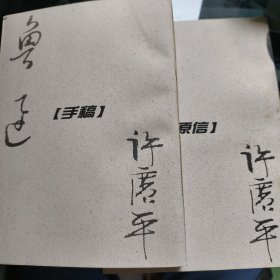 鲁迅
【手稿】
许广平
原信】
许广平